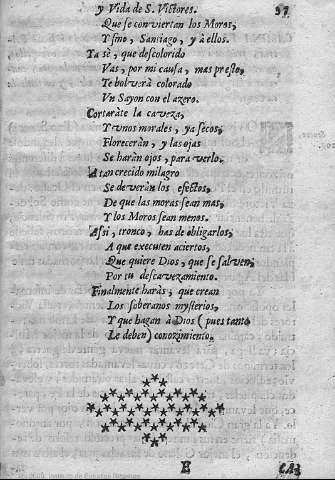 y Vida de S. Victores. 37
Que se conviertan los Moros,
Y sino, Santiago, y à ellos.
Ya sè, que descolorido
Vas, por mi causa, mas presto,
Te bolverà colorado
Vn Sayon con el azero.
Cortaràte la caveza,
Y vnos morales, ya secos,
Floreceràn, y las ojas
Se haràn ojos, para verlo.
A tan crecido milagro
Se deveràn los efectos,
De que las moras sean mas,
Y los Moros sean menos.
Assi, tronco, has de obligarlos,
A que executen aciertos,
Que quiere Dios, que se salven,
Por tu descavezamiento.
Finalmente haràs, que crean
Los soberanos mysterios,
Y que hagan à Dios (pues tanto
Le deben) conozimiento.
E